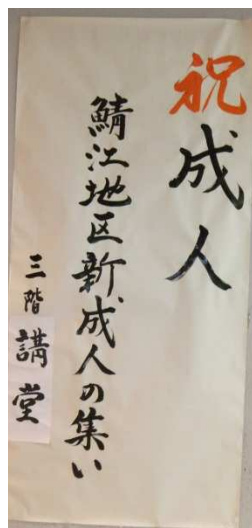 祝成人
鯖江地区新成人の集い
三階講堂